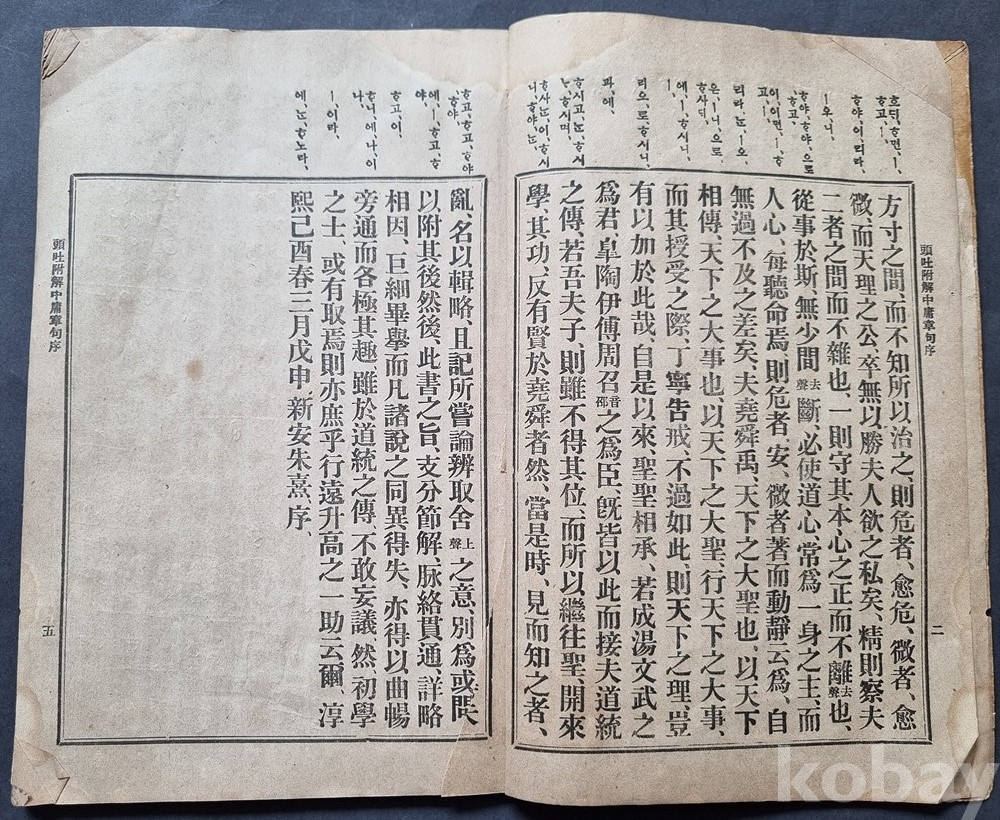 頭吐附解中庸章句序
二
ᄒᆞ고,ㅣ,
ᄒᆞ야,이리라,
ㅣ오니,
ᄒᆞ야,ᄒᆞ야,으로
ᄒᆞ고,
이,이면,ㅣ,ᄒᆞ
고,ㅣ,
리라,는,ㅣ오,
은,ㅣ니,으로
에,ㅣ,ᄒᆞ시니,
ㅣ,
리오,로,ᄒᆞ시니,
과,에,
ᄒᆞ시고,는,ᄒᆞ시
니,ᄒᆞ야는,
方寸之間、而不知所以治之、則危者、愈危、微者、愈
微、而天理之公、卒無以勝夫人欲之私矣、精則察夫
二者之間而不雜也、一則守其本心之正而不離去聲也、
從事於斯、無少間去聲斷、必使道心、常爲一身之主、而
人心、每聽命焉、則危者、安、微者著而動靜云爲、自
無過不及之差矣、夫堯舜禹、天下之大聖也、以天下
相傳、天下之大事也、以天下之大聖、行天下之大事、
而其授受之際、丁寧告戒、不過如此、則天下之理、豈
有以加於此哉、自是以來、聖聖相承、若成湯文武之
爲君、皐陶伊傅周召音邵之爲臣、旣皆以此而接夫道統
之傳、若吾夫子、則雖不得其位、而所以繼往聖、開來
學、其功、反有賢於堯舜者然、當是時、見而知之者、
ᄒᆞ고,ᄒᆞ고,ᄒᆞ야
,ᄒᆞ야,
에,ㅣ,ᄒᆞ고,ᄒᆞ
야,
ᄒᆞ고,이,
ᄒᆞ니,에나,이
나,
ㅣ,이라,
에,는,ᄒᆞ노라,
亂、名以輯略、且記所嘗論辨取舍上聲之意、別爲或問、
以附其後然後、此書之旨、支分節解、脉絡貫通、詳略
相因、巨細畢擧而凡諸說之同異得失、亦得以曲暢
旁通而各極其趣、雖於道統之傳、不敢妄議、然、初學
之士、或有取焉則亦庶乎行遠升高之一助云爾、淳
熙己酉春三月戊申、新安朱熹、序、
頭吐附解中庸章句序
五
kobay